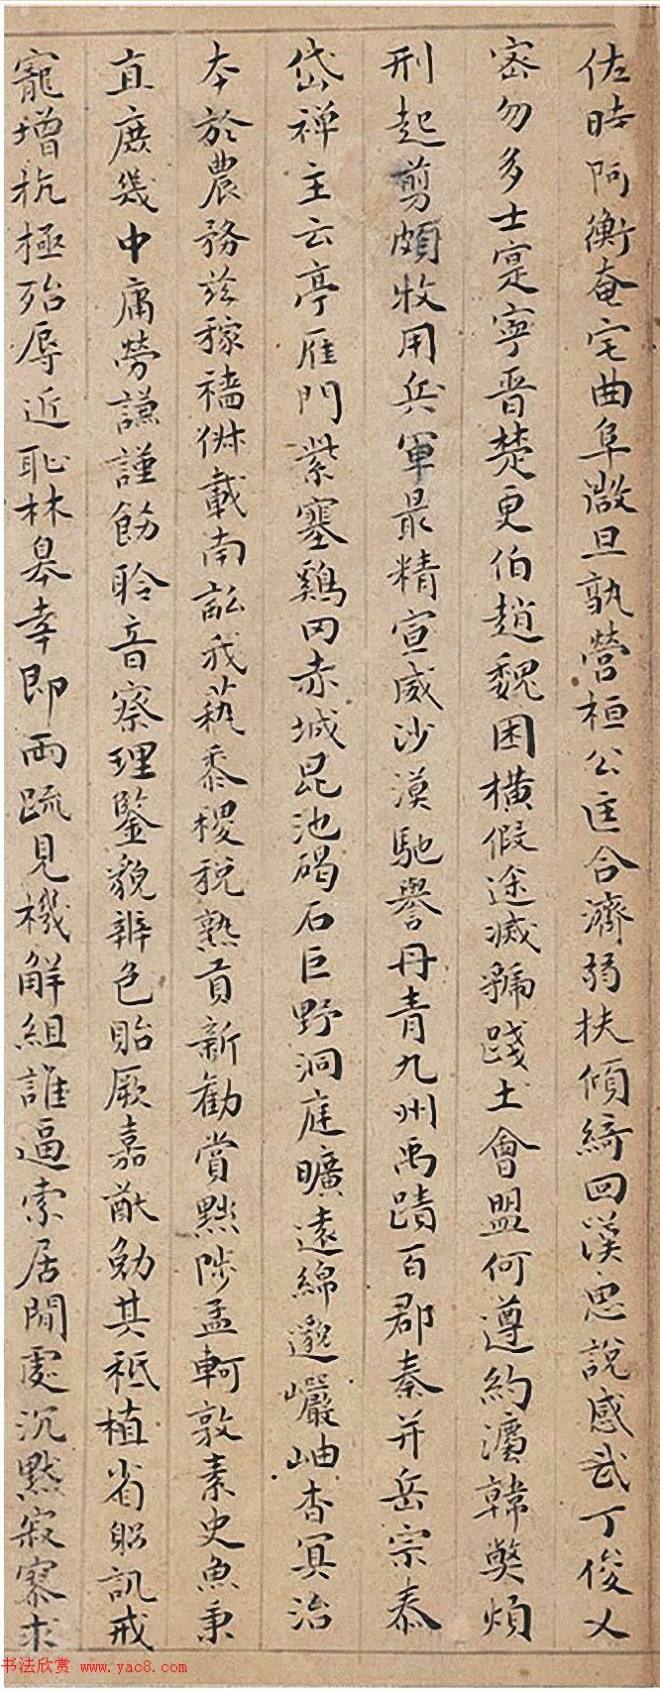 佐時阿衡奄宅曲阜微旦孰營桓公匡合濟弱扶傾綺回漢惠說感武丁俊乂
密勿多士寔寧晉楚更伯趙魏困橫假途滅虢踐土會盟何遵約法韓弊煩
刑起翦頗牧用兵軍最精宣威沙漠馳譽丹青九州禹蹟百郡秦并岳宗泰
岱禪主云亭雁門紫塞鷄田赤城昆池碣石巨野洞庭曠遠綿邈巖岫杳冥治
本於農務茲稼穡俶載南畝我藝黍稷稅熟貢新勸賞黜陟孟軻敦素史魚秉
直庶幾中庸勞謙謹飭聆音察理鑒貌辨色貽厥嘉猷勉其祗植省躬譏戒
寵增抗極殆辱近恥林皋幸即兩疏見機解組誰逼索居閒處沉默寂寥求
书法欣赏 www.yac8.com